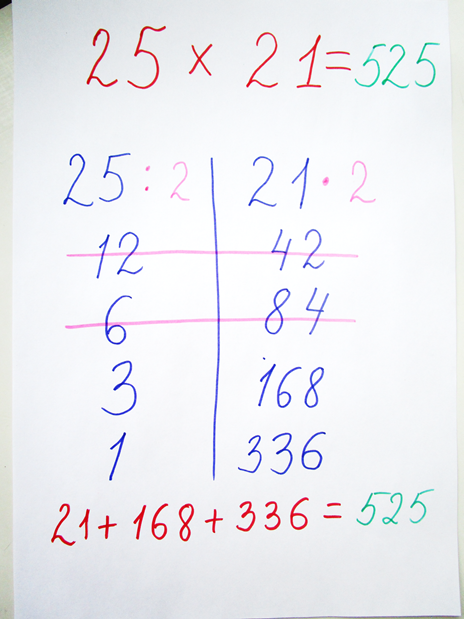 25 × 21 = 525
25 : 2 | 21 · 2
12 | 42
6 | 84
3 | 168
1 | 336
21 + 168 + 336 = 525